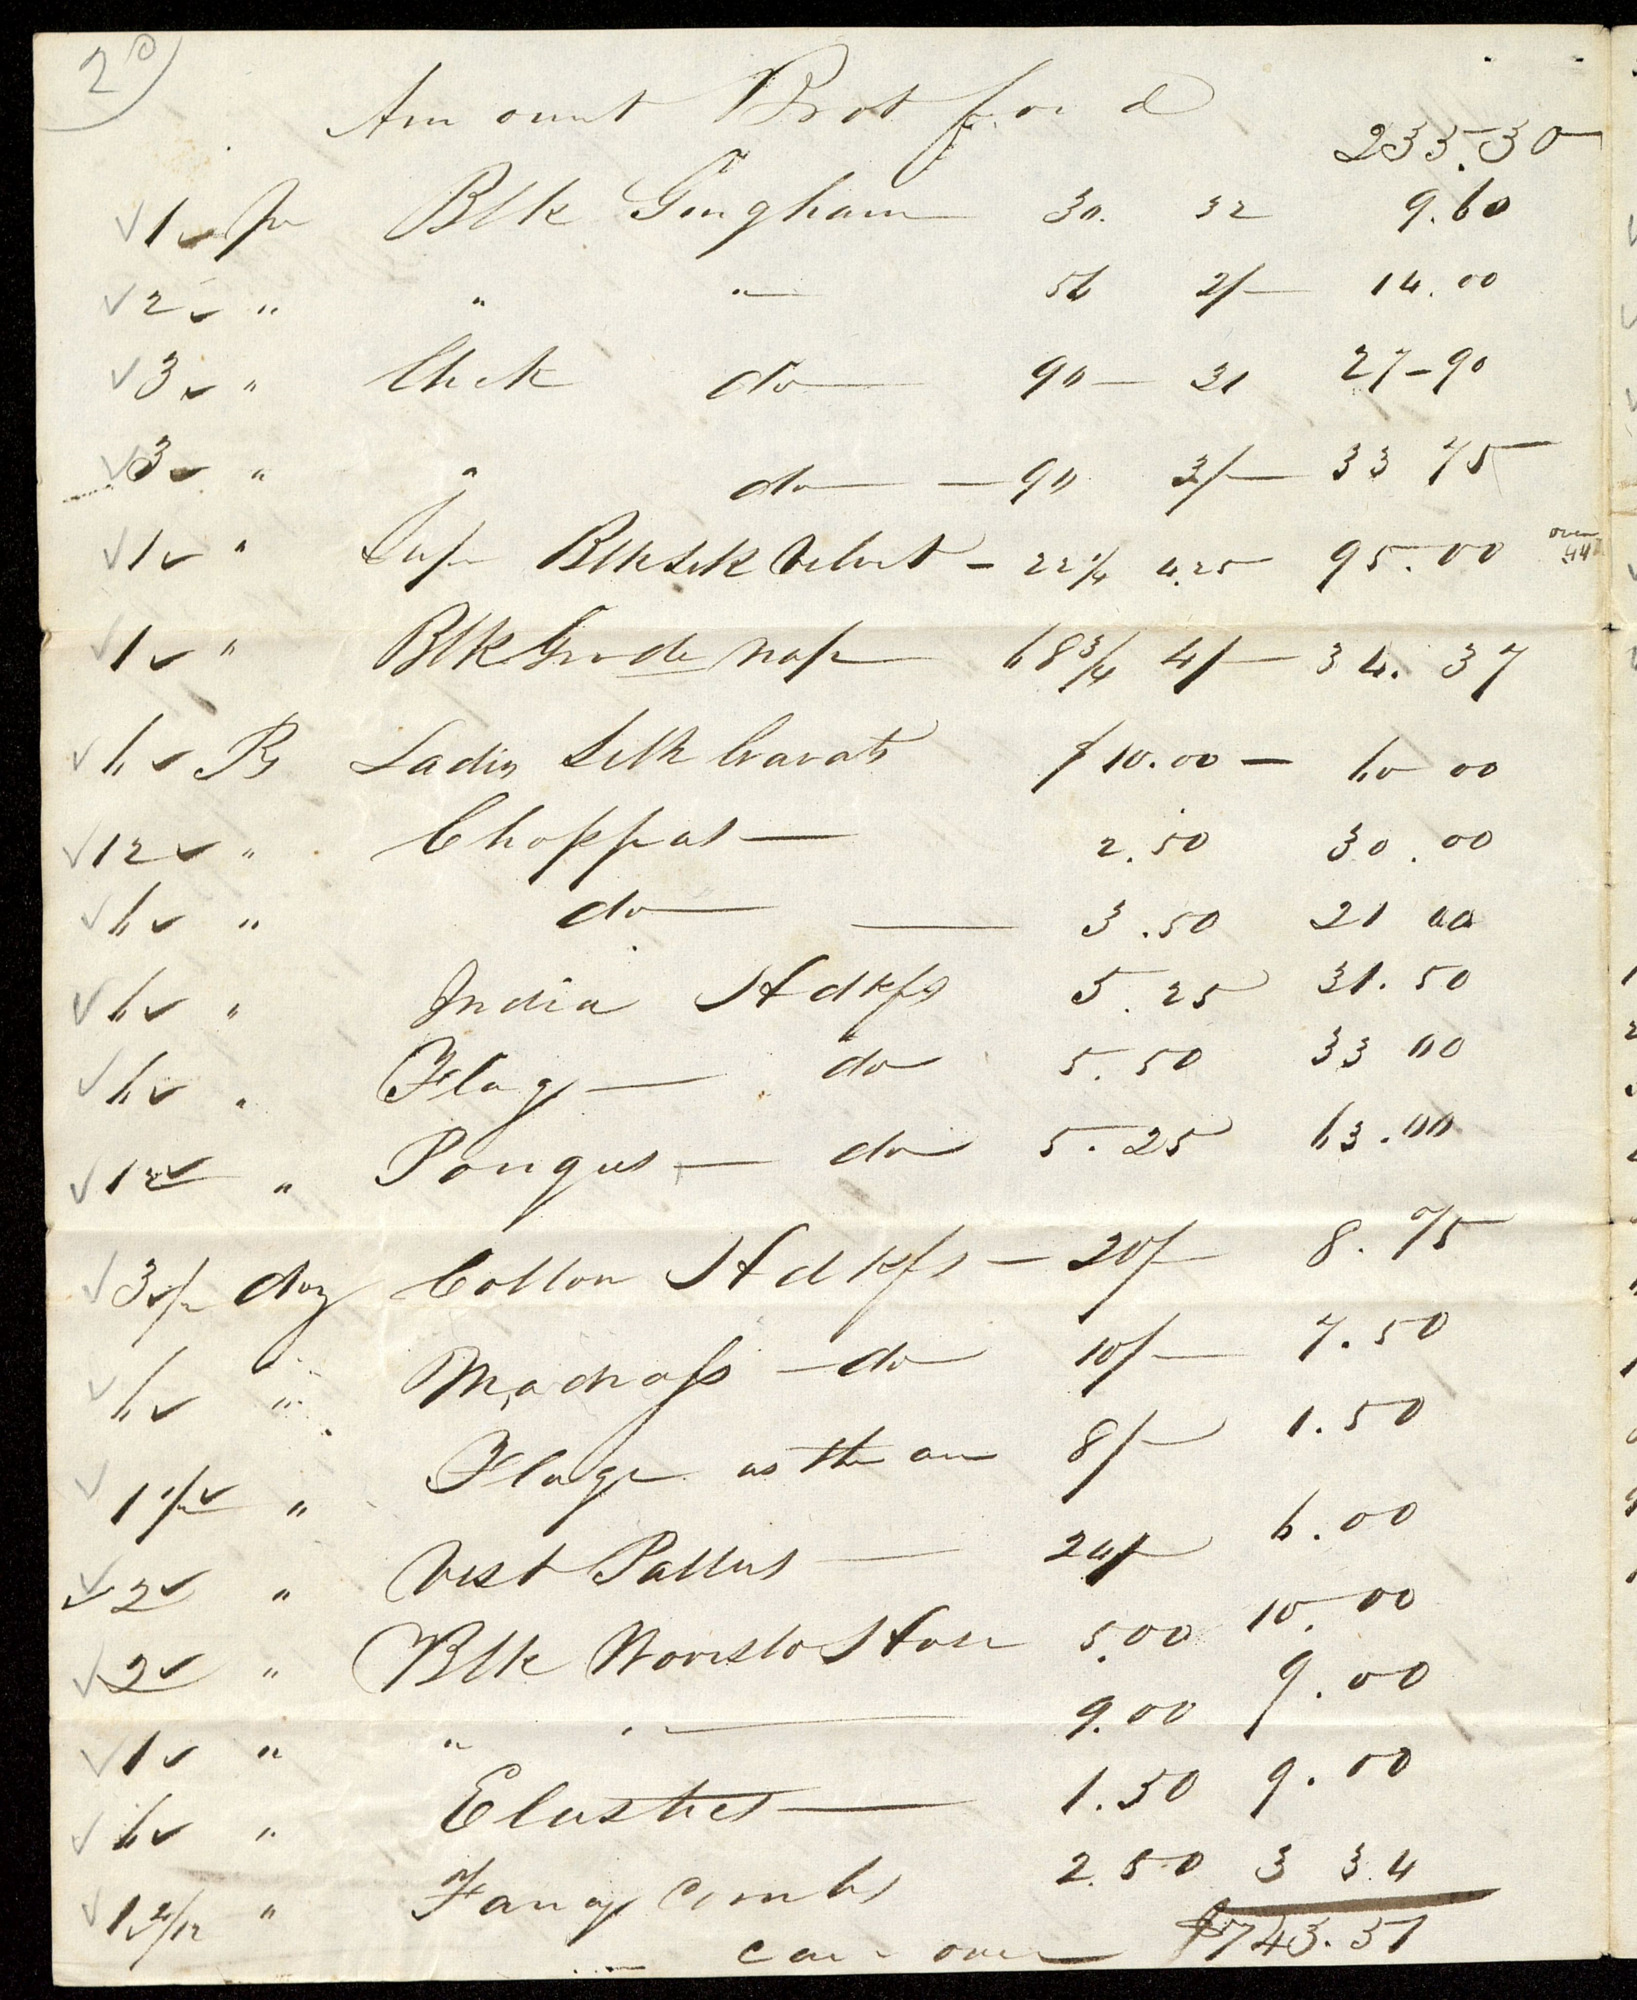 2
Amount Brot ford 233.30
1 ps Blk Gingham 30. 32 9.60
2 " " " 56 2/- 14.00
3 " Check do 90 - 31 27-90
3 " " do - 90 3/- 33 75
1 " Supr Blk Silk Velvet - 22 1/4 4.25 95.00 over 44
1 " Blk Gro de nap 68 3/4 4/- 34.37
6 Ps Ladies Silk Cravats $10.00 - 60 00
12 " Choppas 2.50 30.00
6 " do 3.50 21 00
6 " India Hdkfs 5.25 31.50
6 " Flag do 5.50 33 00
12 " Pongees do 5.25 63.00
3 1/2 doz Cotton Hdkfs - 20/- 8.75
6 " Madrass - do 10/- 7.50
1 1/2 " Flage as the are 8/- 1.50
2 " Vest Patterns 24/- 6.00
2 " Blk Worsted Hose 5.00 10.00
1 " " " 9.00 9.00
6 " Elastics 1.50 9.00
1 4/12 " Fancy Combs 2.50 3 34
car over $743.51